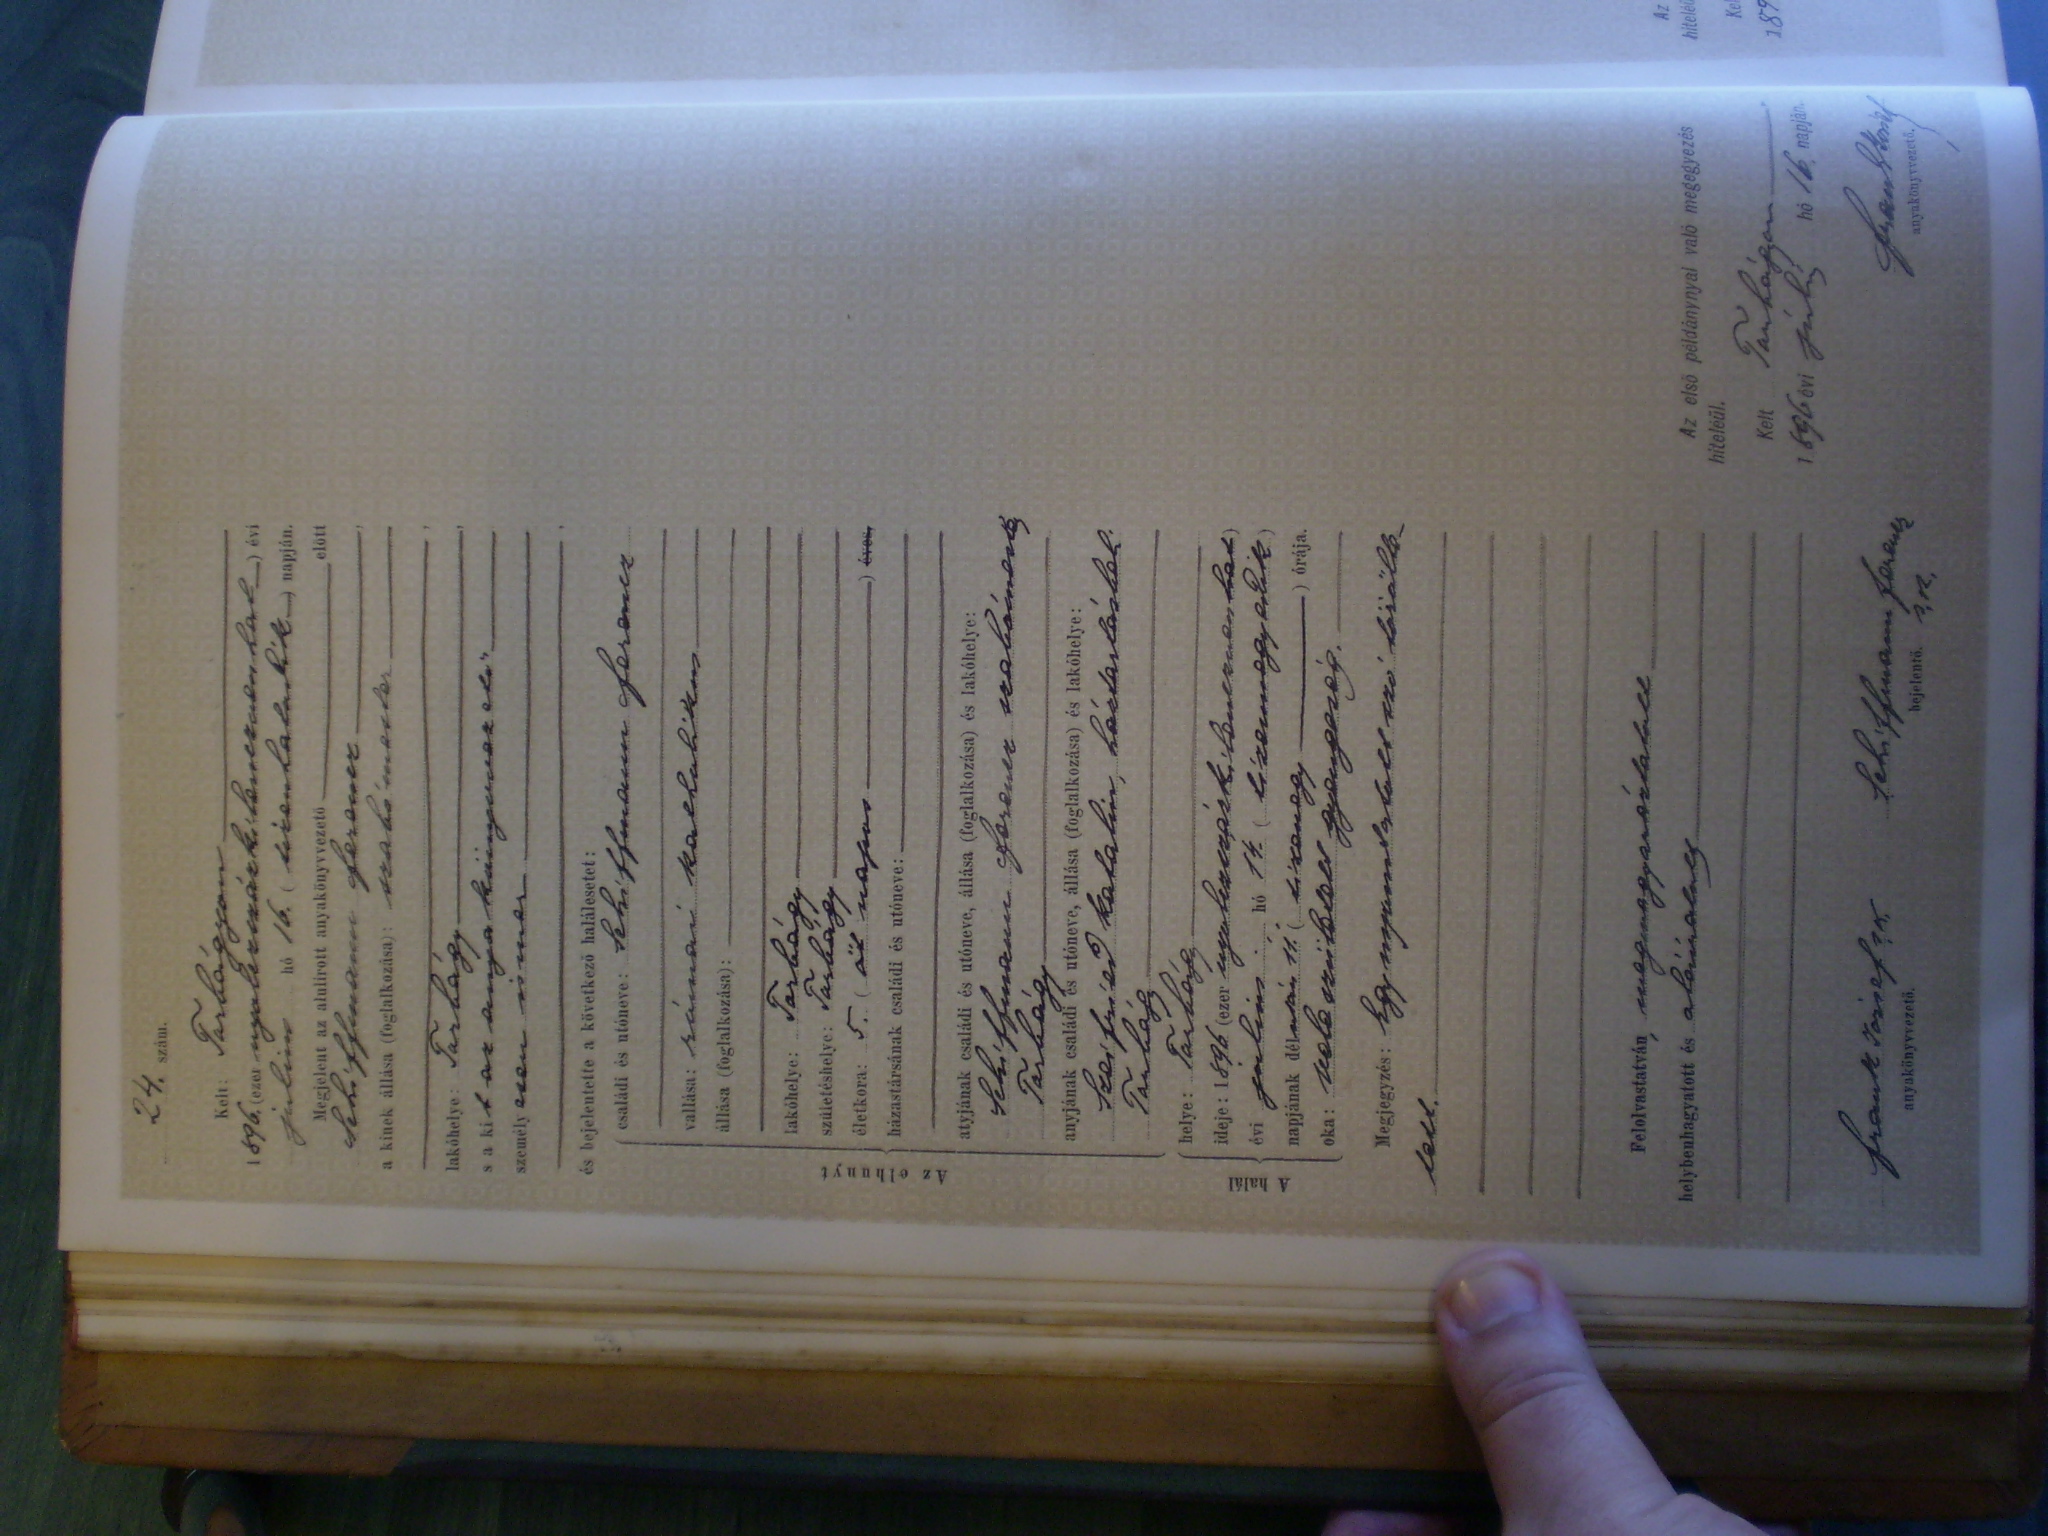 24. szám.
Kelt: Tarhágyon
1896. (ezer nyolczszázkilenczvenhat) évi
julius hó 16. (tizenhatodik) napján.
Megjelent az alulirott anyakönyvvezető előtt
Schiffmann Ferencz
a kinek állása (foglalkozása): szabómester
lakóhelye: Tarhágy
s a kit az anyakönyvvezető
személyesen ismer
és bejelentette a következő halálesetet:
Az elhunyt
családi és utóneve: Schiffmann Ferencz
vallása: római katholikus
állása (foglalkozása):
lakóhelye: Tarhágy
születéshelye: Tarhágy
életkora: 5. (öt napos) éves,
házastársának családi és utóneve:
atyjának családi és utóneve, állása (foglalkozása) és lakóhelye:
Schiffmann Ferencz szabómester
Tarhágy
anyjának családi és utóneve, állása (foglalkozása) és lakóhelye:
Szeifried Katalin, háztartásbeli
Tarhágy
A halál
helye: Tarhágy
ideje: 1896 (ezer nyolczszázkilenczvenhat)
évi julius hó 14. (tizennegyedik)
napjának délután 11. (tizenegy) órája.
oka: vele született gyengeség.
Megjegyzés: Egy nyomtatott szó törölte-
tett.
Felolvastatván, megmagyaráztatott
helybenhagyatott és aláiratott
Frank József s.k. Schiffmann Ferencz s.k.
anyakönyvvezető. bejelentő.
Az első példánynyal való megegyezés
hiteléül.
Kelt Tarhágyon
1896 évi július hó 16. napján.
Frank József
anyakönyvvezető.
Az
hiteléü
Ke
189